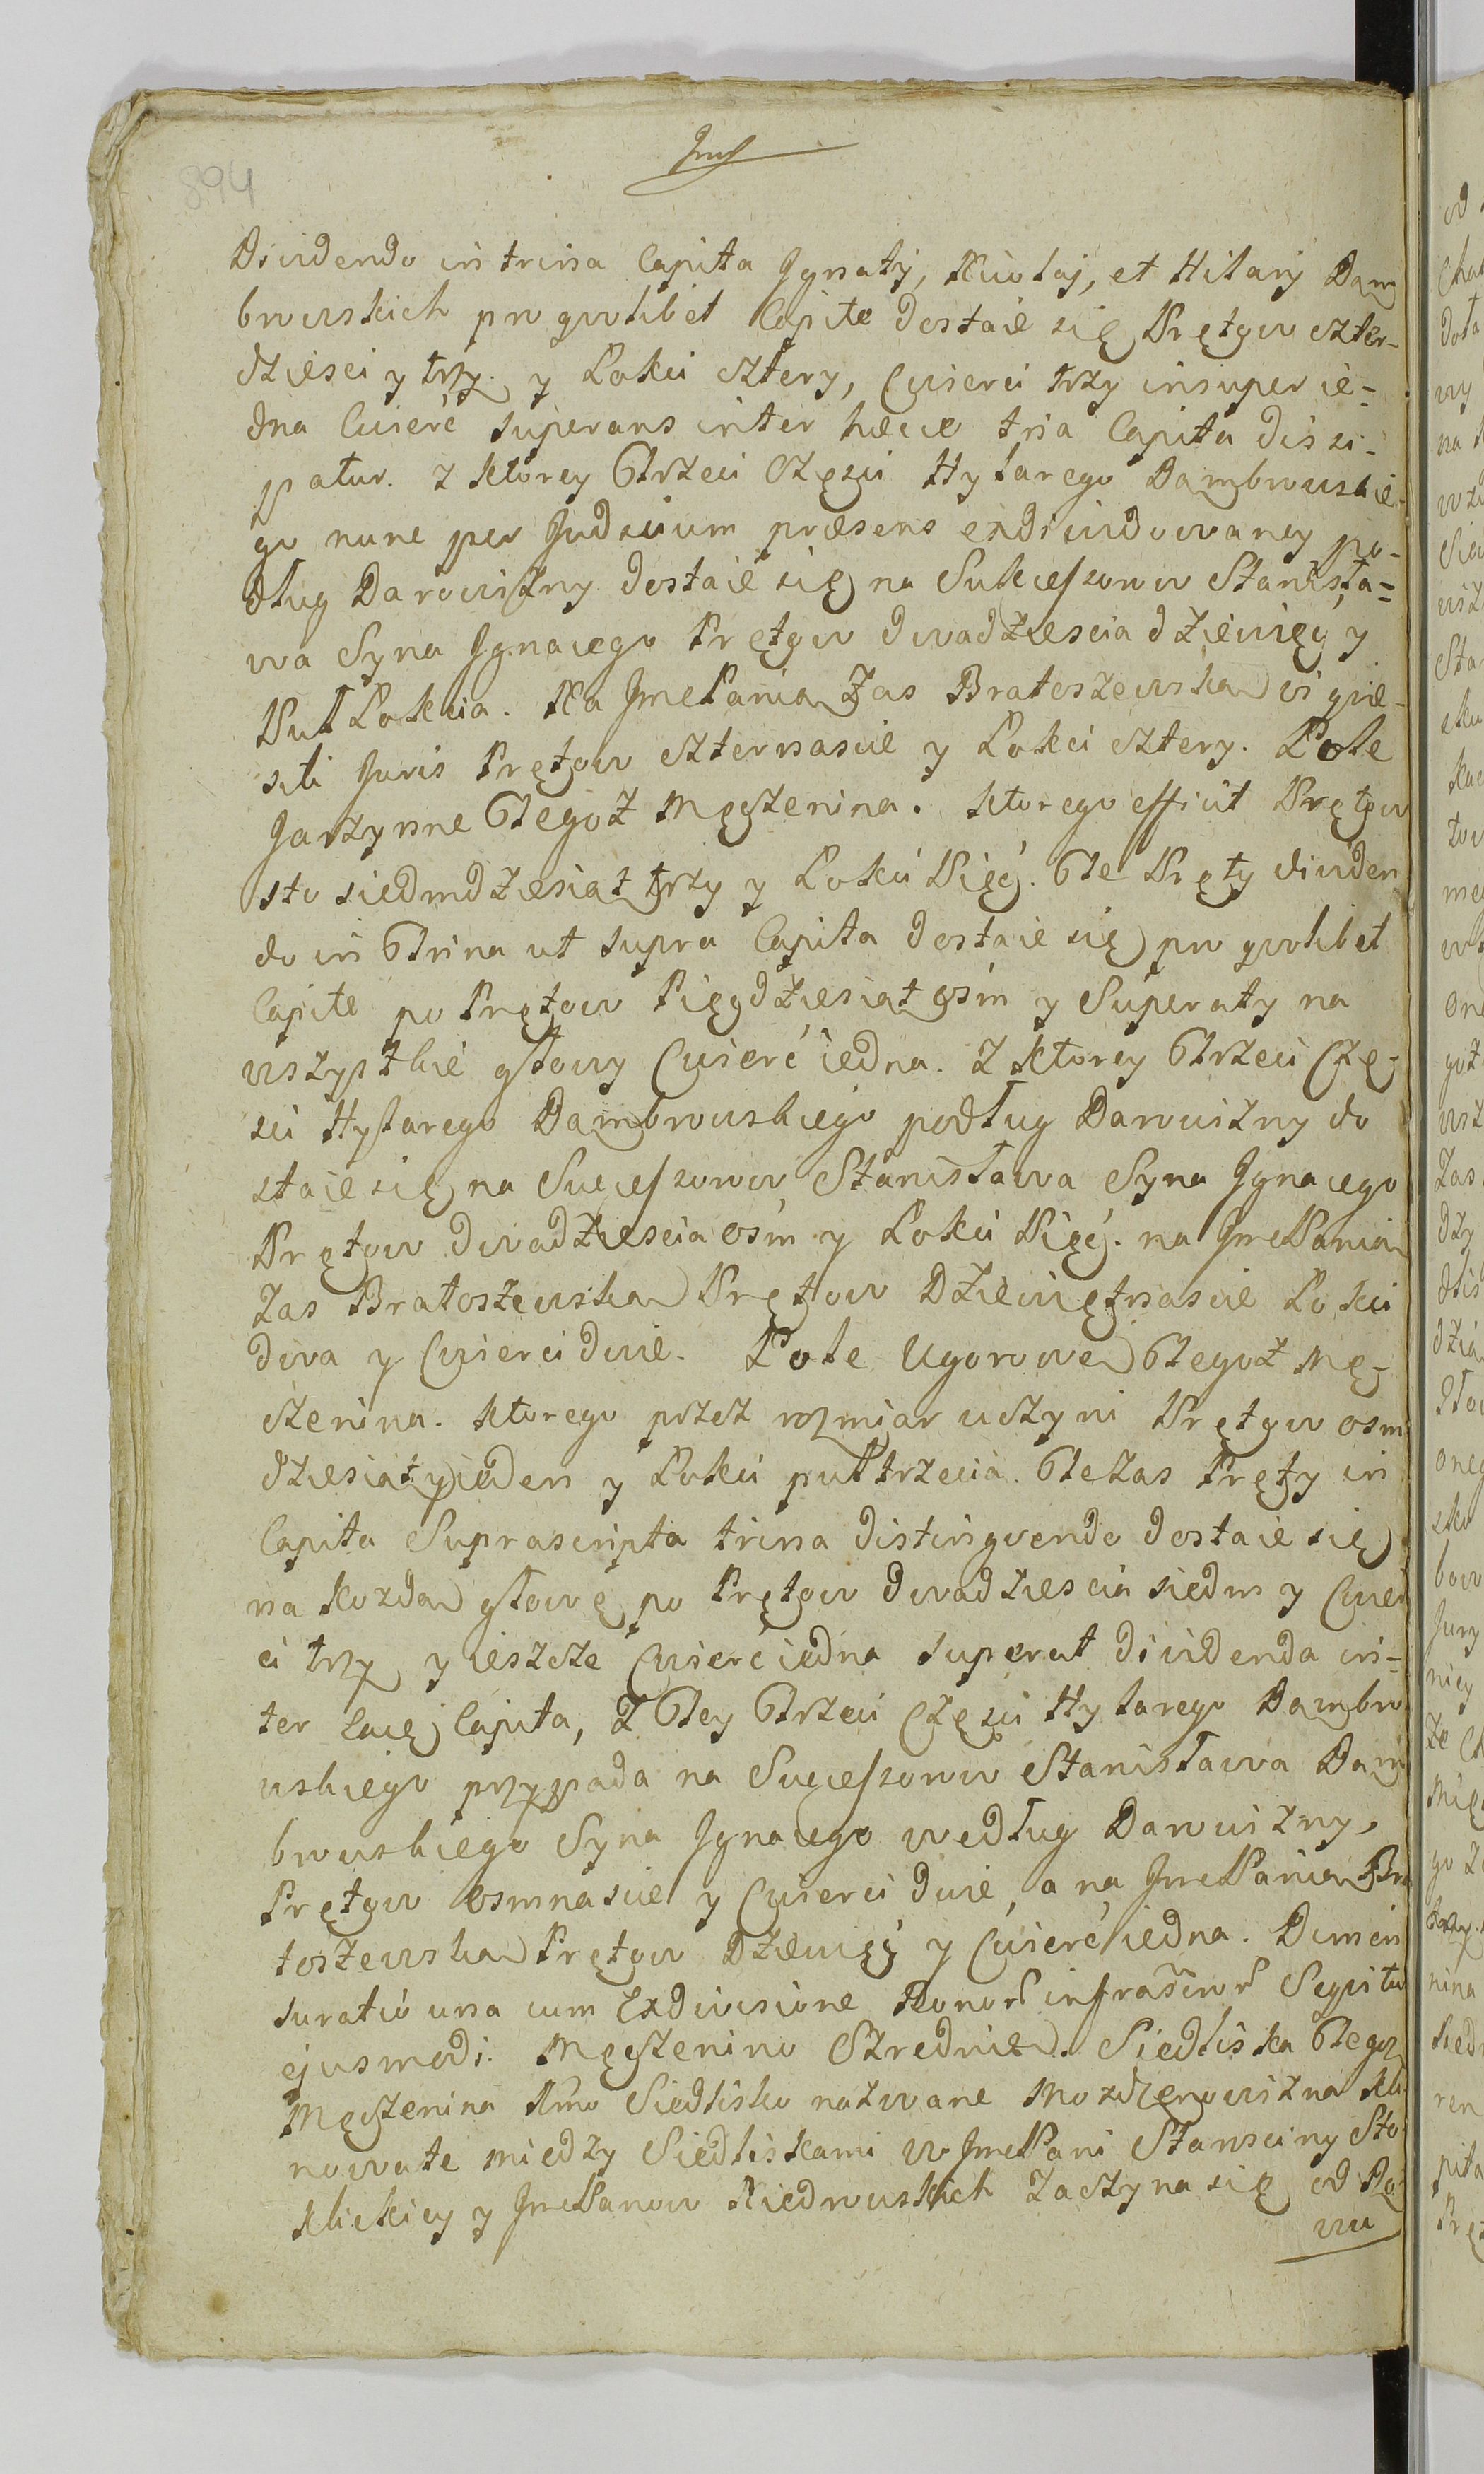 894
Dividendo in trina Capita Ignatij, Nicolaj, et Hilarij Dąm
browskich pro quolibet Capite dostaie się Prętow czter-
dziesci y trzy y Łokci cztery, Cwierci trzy insuper ie-
dna Cwierć superans inter hæcce tria Capita dissi-
patur. z ktorey Trzeci Częsci Hylarego Dąmbrowskie-
go nunc per Judicium præsens exdiwidowaney po-
dług Darowizny dostaie się na Sukcessorow Stanisła-
wa Syna Jgnacego Prętow dwadziescia dziewięć y
Puł Łokcia. Na JmcPanią Zas Bratoszewską vi quæ-
siti Juris Prętow czternascie y Łokci cztery. Pole
Jarzynne Tegoż Męczenina. ktorego efficit Prętow
sto siedmdziesiąt trzy y Łokci Pięć. Te Pręty dividen
do in Trina ut supra Capita dostaie się pro quolibet
Capite po Prętow Pięćdziesiąt osm y Superaty na
wszystkie głowy Cwierć iedna. Z ktorey Trzeci Czę-
sci Hylarego Dąmbrowskiego podług Darowizny do
staie się na Sukcessorow Stanisława Syna Jgnacego
Prętow dwadziescia osm y Łokci Pięć. na JmcPanią
Zas Bratoszewską Prętow Dziewiętnascie Łokci
dwa y Cwierci dwie. Pole Ugorowe Tegoż Mę-
czenina. ktorego przez rozmiar uczyni Prętow osm
dziesiąt y ieden y Łokci pułtrzecia. Te Zas Pręty in
Capita Suprascripta trina distinguendo dostaie się
na kozdą głowę po Prętow dwadziescia siedm y Cwier
ci trzy y ieszcze Cwierć iedna superat dividenda in-
ter eacę Capita, Z Tey Trzeci Częsci Hylarego Dąmbro
wskiego przypada na Sukcessorow Stanisława Dąm
browskiego Syna Jgnacego według Darowizny,
Prętow osmnascie y Cwierci dwie, a na JmcPanią Bra
toszewską Prętow Dziewięć y Cwierć iedna. Dimen
suratio una cum Exdivisione Bonor infrascrior Seqvitur
ejusmodi. Męczenino Srednie. Siedliska Tegoż
Męczenina 1mo Siedlisko nazwane Mozdzenowizna kli
nowate miedzy Siedliskami W JmcPani Starosciny Sto
klickiey y JmcPanow Niedrowskich Zaczyna się od Ro
wu